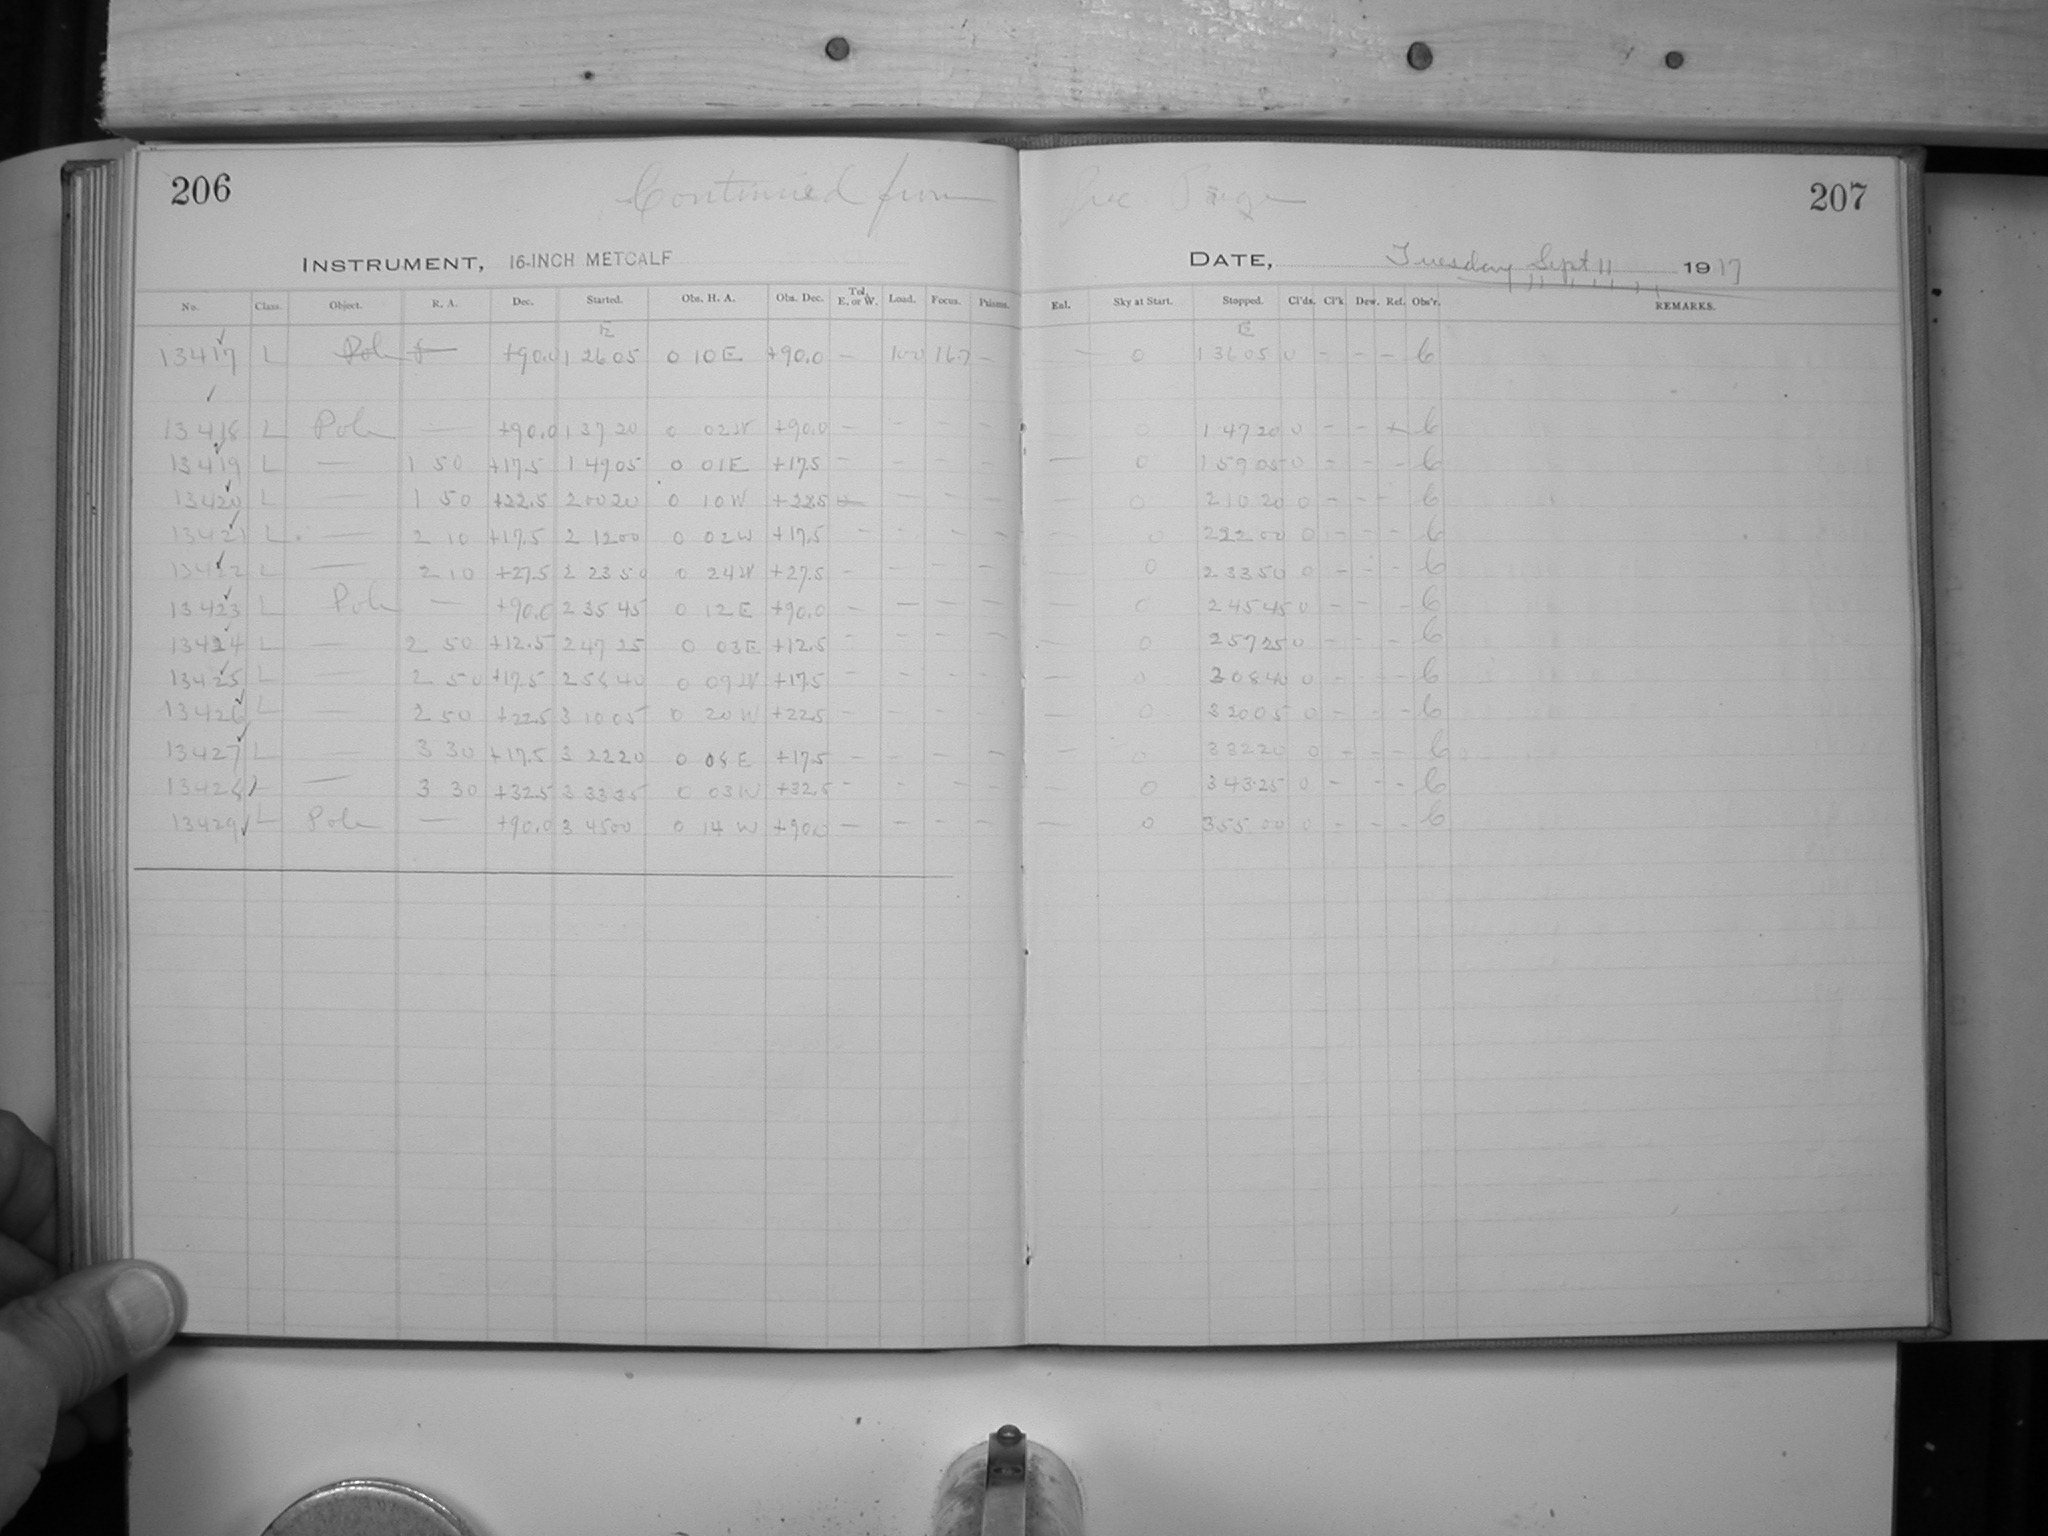 206
Continued from Prec. Page
207
INSTRUMENT, 16-INCH METCALF
DATE, Tuesday Sept 11 1917
No. Class. Object. R. A. Dec. Started. Obs. H. A. Obs. Dec. Tel. E. or W. Load. Focus. Prisms. Enl. Sky at Start. Stopped. Cl'ds. Cl'k Dew. Ref. Obs'r. REMARKS.
E E
13417 L Pole — +90.0 1 26 05 0 10 E +90.0 — 100 16.7 — — 0 1 36 05 0 - - - 6
13418 L Pole — +90.0 1 37 20 0 02 W +90.0 — - - - — 0 1 47 20 0 - - - 6
13419 L — 1 50 +17.5 1 49 05 0 01 E +17.5 — - - - — 0 1 59 05 0 - - - 6
13420 L — 1 50 +22.5 2 00 20 0 10 W +22.5 — - - - — 0 2 10 20 0 - - - 6
13421 L — 2 10 +17.5 2 12 00 0 02 W +17.5 - - - - — 0 2 22 00 0 - - - 6
13422 L — 2 10 +27.5 2 23 50 0 24 W +27.5 - - - - — 0 2 33 50 0 - - - 6
13423 L Pole — +90.0 2 35 45 0 12 E +90.0 - - - - — 0 2 45 45 0 - - - 6
13424 L — 2 50 +12.5 2 47 25 0 03 E +12.5 - - - - — 0 2 57 25 0 - - - 6
13425 L — 2 50 +17.5 2 58 40 0 09 W +17.5 - - - - — 0 3 08 40 0 - - - 6
13426 L — 2 50 +22.5 3 10 05 0 20 W +22.5 - - - - — 0 3 20 05 0 - - - 6
13427 L — 3 30 +17.5 3 22 20 0 08 E +17.5 - - - - — 0 3 32 20 0 - - - 6
13428 L — 3 30 +32.5 3 33 35 0 03 W +32.5 - - - - — 0 3 43 25 0 - - - 6
13429 L Pole — +90.0 3 45 00 0 14 W +90.0 — - - - — 0 3 55 00 0 - - - 6